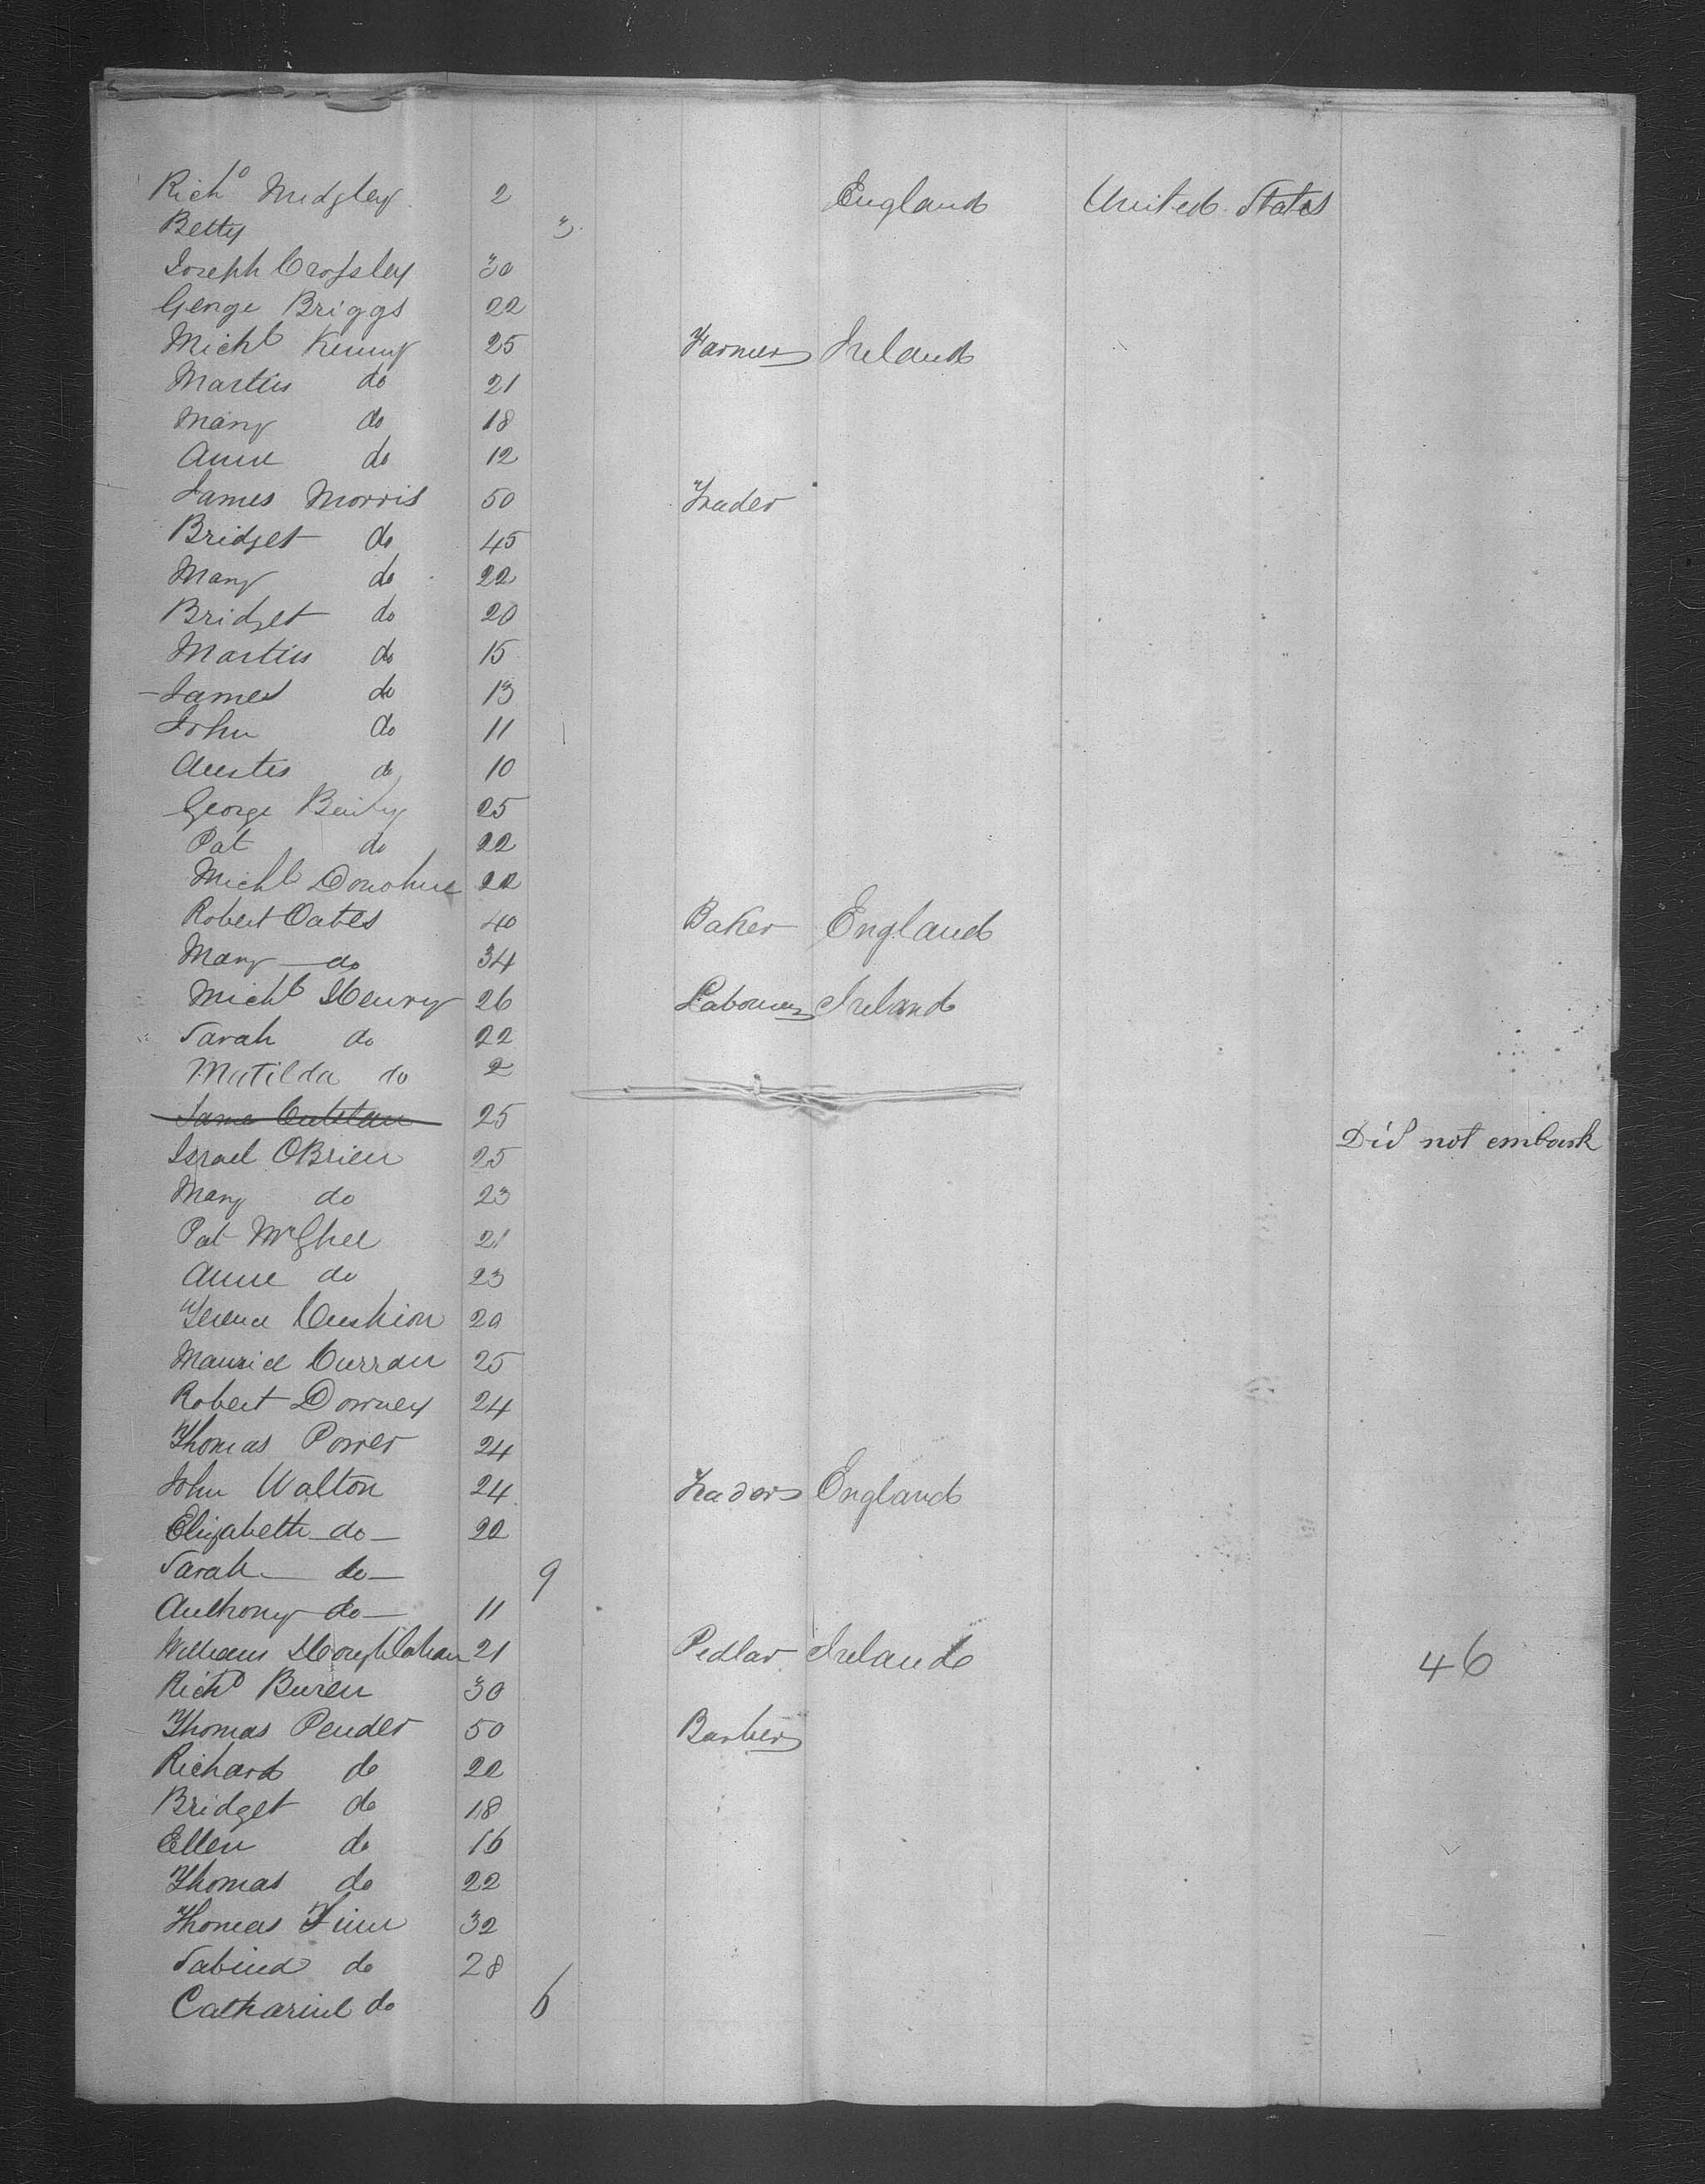 Rich^d Midgley 2 England United States
Betty 3
Joseph Crossley 30
George Briggs 22
Mich^l Kenny 25 Farmer Ireland
Martin do 21
Mary do 18
Anne do 12
James Morris 50 Trader
Bridget do 45
Mary do 22
Bridget do 20
Martin do 15
James do 13
John do 11
Austin do 10
George 25
Pat do 22
Mich^l Donohue 22
Robert Oates 40 Baker England
Mary do 34
Mich^l Henry 26 Labourer Ireland
Sarah do 22
Matilda do 2
25 Did not embark
Israel OBrien 25
Mary do 23
Pat McGhee 21
Anne do 23
Cushion 20
Maurice Curran 25
Robert Downey 24
Thomas Power 24
John Walton 24 Trader England
Elizabeth do 22
Sarah do 9
Anthony do 11
William 21 Pedlar Ireland 46
Rich^d Buren 30
Thomas Pender 50 Barber
Richard do 22
Bridget do 18
Ellen do 16
Thomas do 22
Thomas Finn 32
Sabina do 28
Catharine do 6